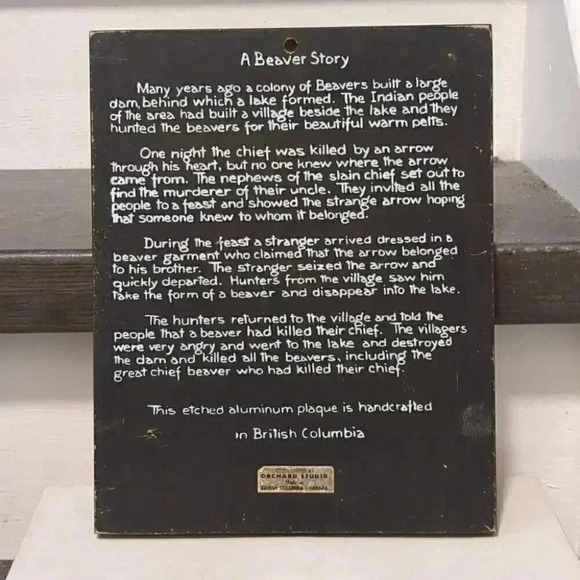 A Beaver Story
Many years ago a colony of Beavers built a large
dam, behind which a lake formed. The Indian people
of the area had built a village beside the lake and they
hunted the beavers for their beautiful warm pelts.
One night the chief was killed by an arrow
through his heart, but no one knew where the arrow
came from. The nephews of the slain chief set out to
find the murderer of their uncle. They invited all the
people to a feast and showed the strange arrow hoping
that someone knew to whom it belonged.
During the feast a stranger arrived dressed in a
beaver garment who claimed that the arrow belonged
to his brother. The stranger seized the arrow and
quickly departed. Hunters from the village saw him
take the form of a beaver and disappear into the lake.
The hunters returned to the village and told the
people that a beaver had killed their chief. The villagers
were very angry and went to the lake and destroyed
the dam and killed all the beavers, including the
great chief beaver who had killed their chief.
This etched aluminum plaque is handcrafted
in British Columbia
ORCHARD STUDIO
Made in
BRITISH COLUMBIA - CANADA